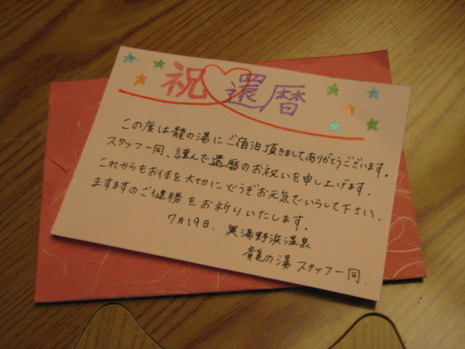 祝還暦
この度は龍の湯にご宿泊頂きましてありがとうございます。
スタッフ一同、謹んで還暦のお祝いを申し上げます。
これからもお体を大切にどうぞお元気でいらして下さい。
ますますのご健勝をお祈りいたします。
7月19日. 奥湯野浜温泉
龍の湯スタッフ一同.